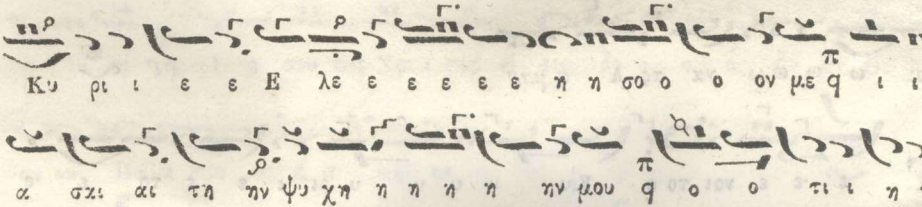 Κυ ρι ι ε ε Ε λε ε ε ε ε ε η η σο ο ο ο ον με π q ι ι
α σαι αι τη ην ψυ χη η η η η ην μου π q ο ο τι ι η